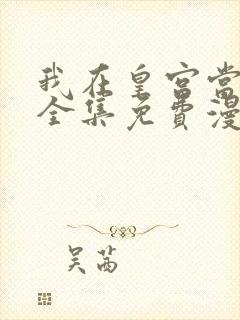 我在皇宫当
全集免费漫
吴茜